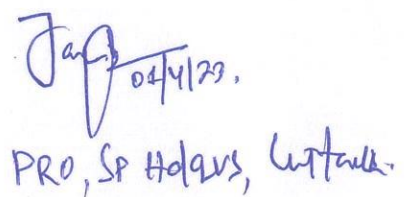 04/4/23.
PRO, SP Hdqrs, Cuttack.